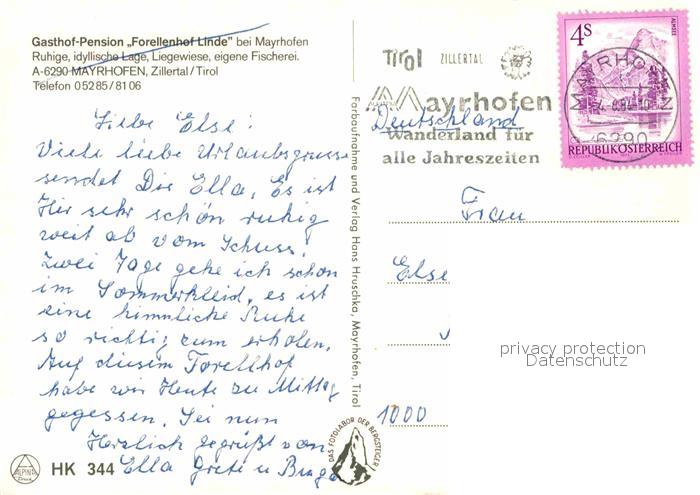 Gasthof-Pension „Forellenhof Linde" bei Mayrhofen
Ruhige, idyllische Lage, Liegewiese, eigene Fischerei.
A-6290 MAYRHOFEN, Zillertal/Tirol
Telefon 05285/8106
Liebe Else!
Viele liebe Urlaubsgrüsse
sendet Dir Ella, Es ist
Hir sehr schön ruhig
weit ab vom Schuss.
Zwei Tage gehe ich schon
im Sommerkleid, es ist
eine himmliche Ruhe
so richtig zum erholen.
Auf diesem Forellhof
habe wir Heute zu Mittag
gegessen. Sei nun
Herzlich gegrüßt von
Ella Grete u
ALPINA
Druck
HK 344
Farbaufnahme und Verlag Hans Hruschka, Mayrhofen, Tirol
DAS FOTOLABOR DER BERGSTEIGER
Tirol ZILLERTAL
Mayrhofen
Deutschland
Wanderland für
alle Jahreszeiten
ALMSEE
4S
MAYRHOFEN
6290
REPUBLIK ÖSTERREICH
Frau
Else
1000
privacy protection
Datenschutz